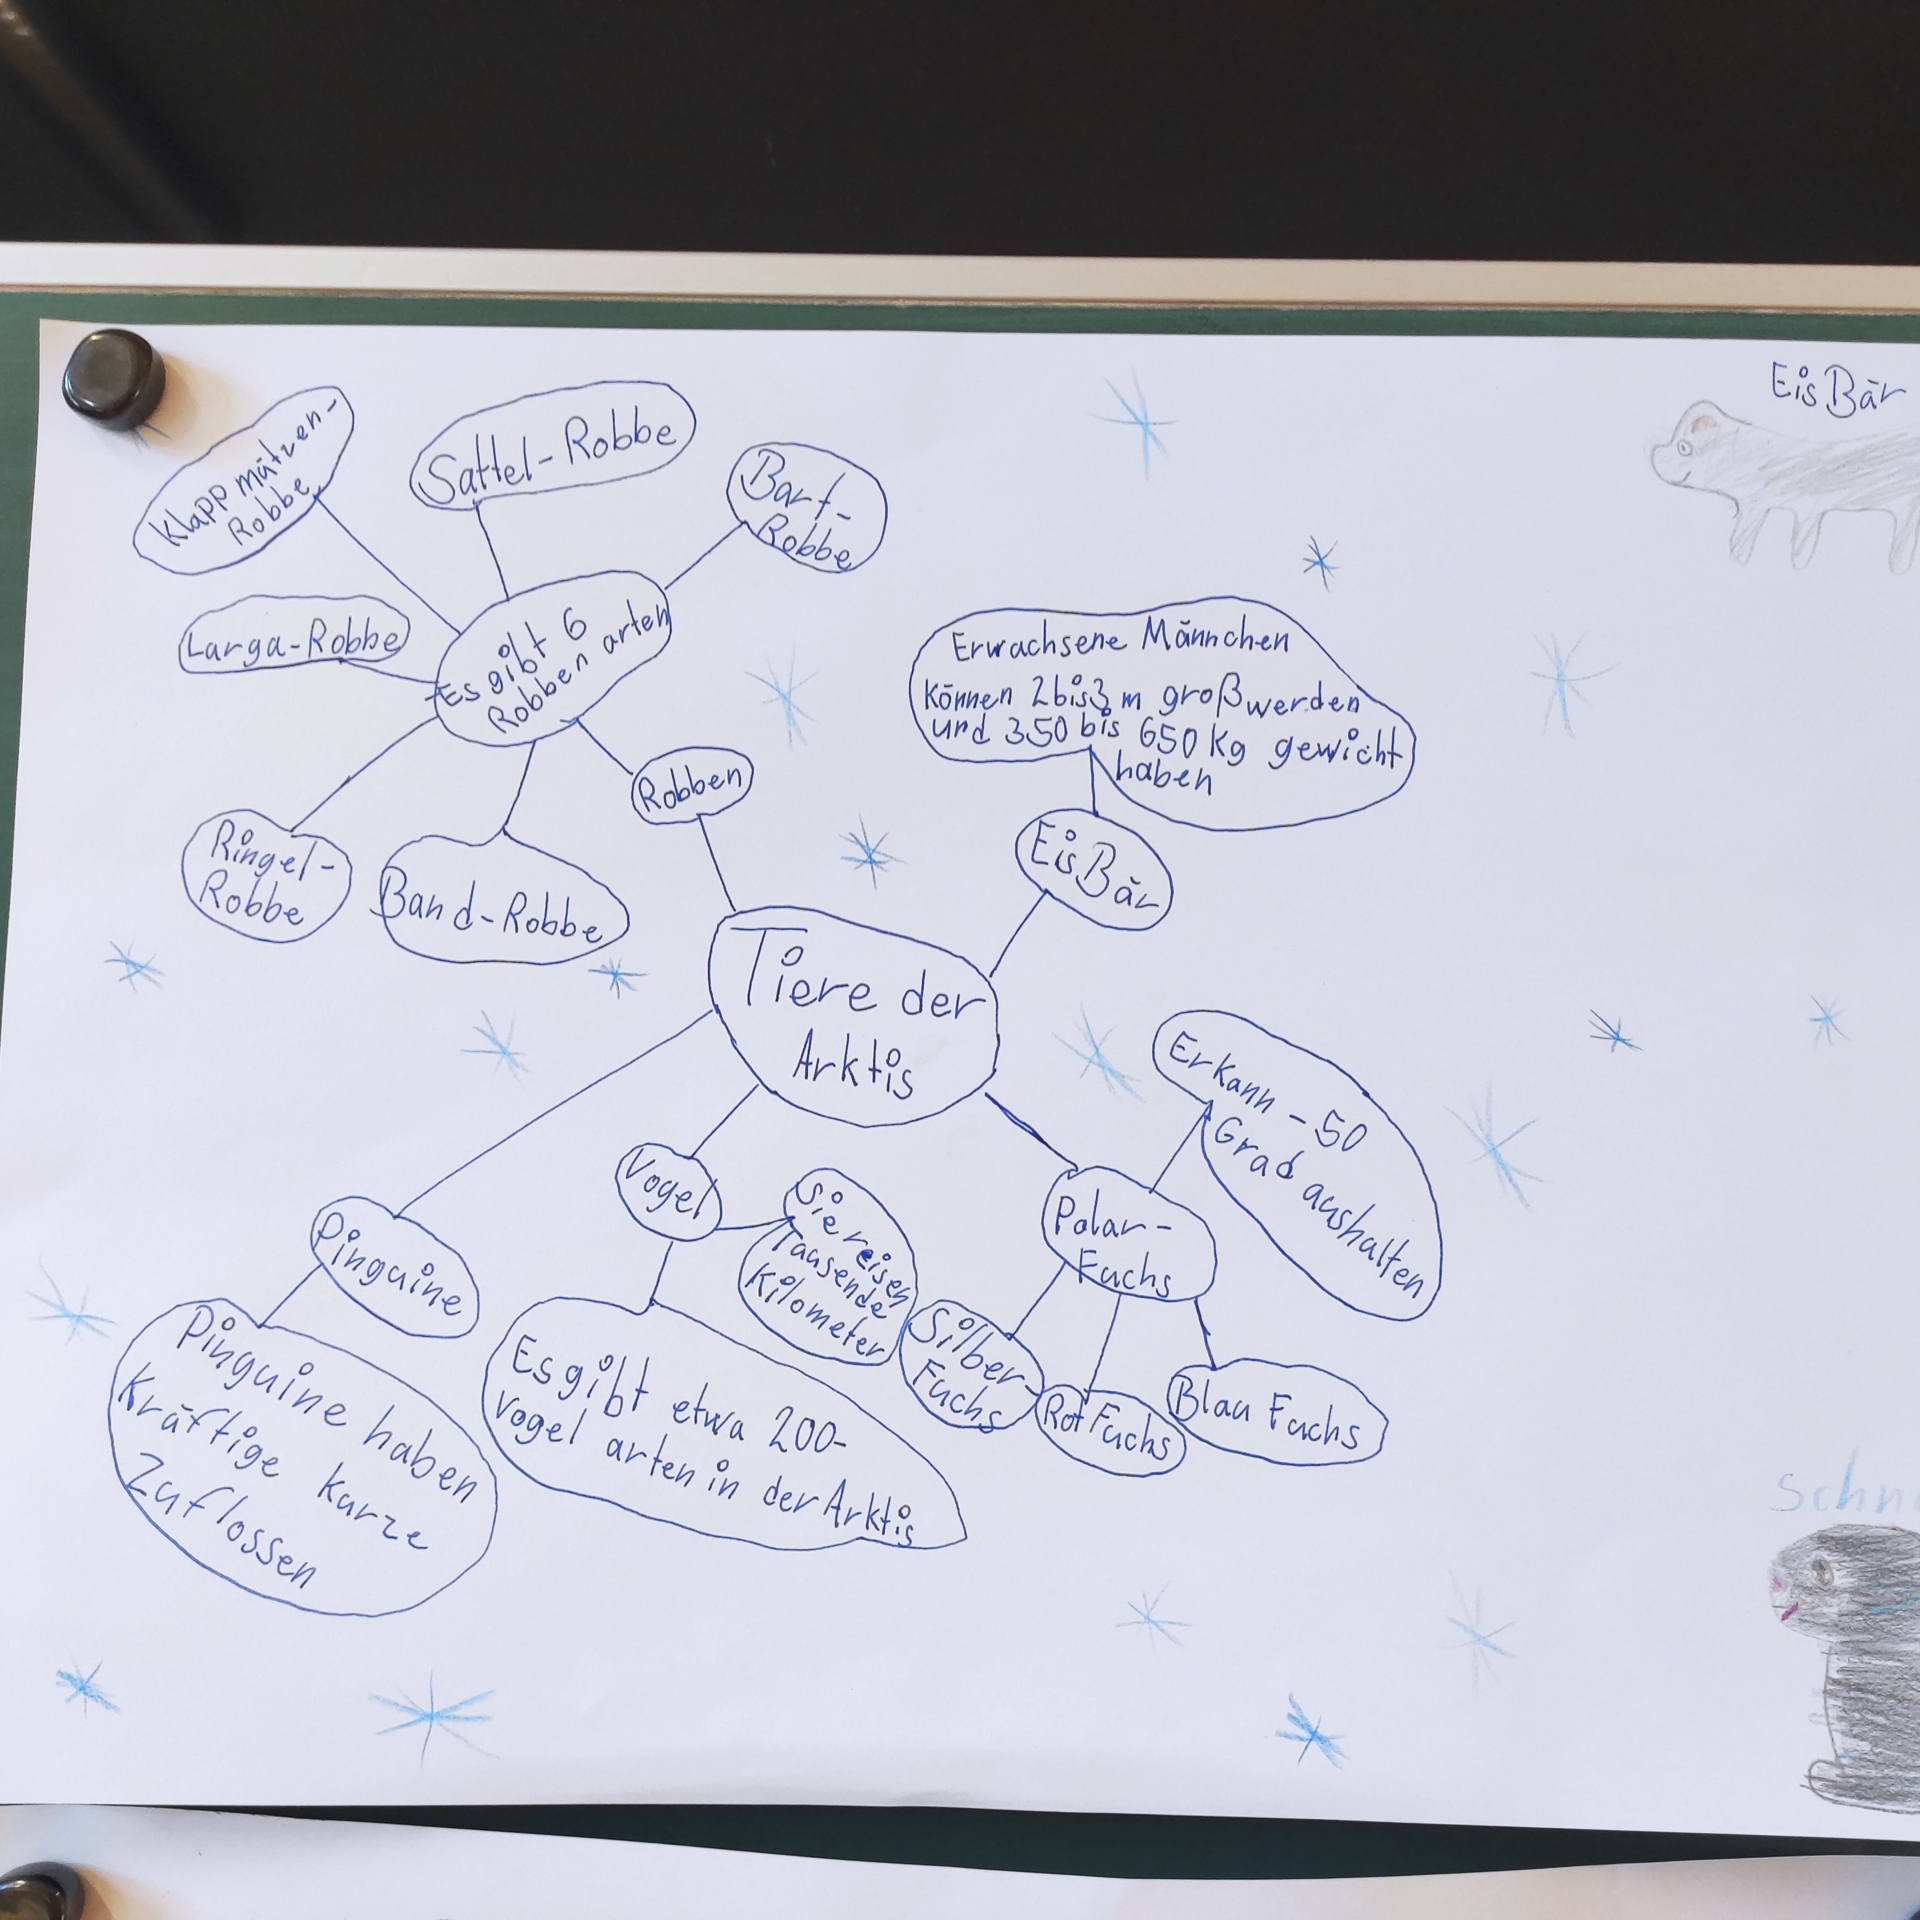 EisBär
Klappmützen-
Robbe
Sattel-Robbe
Bart-
Robbe
Larga-Robbe
Es gibt 6
Robben arten
Ringel-
Robbe
Band-Robbe
Robben
Erwachsene Männchen
können 2 bis 3 m groß werden
und 350 bis 650 kg gewicht
haben
EisBär
Tiere der
Arktis
Er kann -50
Grad aushalten
Polar-
Fuchs
Silber-
Fuchs
Rot Fuchs
Blau Fuchs
Vogel
Sie reisen
Tausende
Kilometer
Es gibt etwa 200-
Vogel arten in der Arktis
Pinguine
Pinguine haben
Kräftige kurze
Zuflossen
Schn